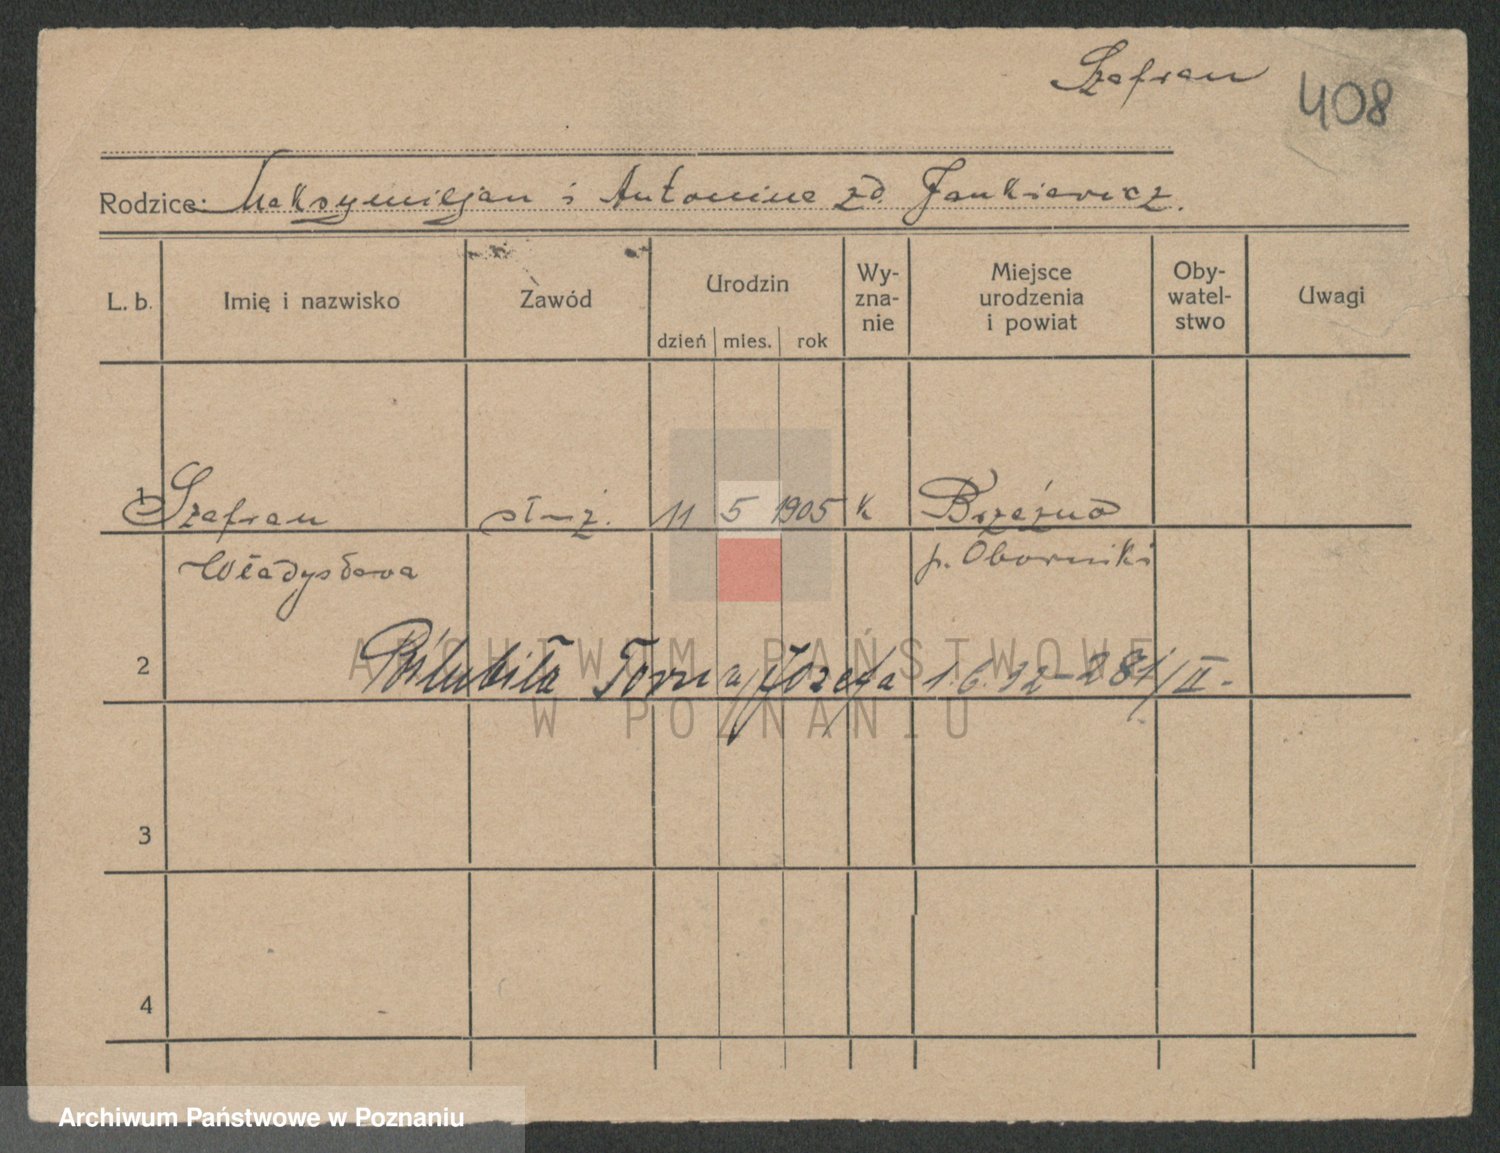 Szafran 408
Rodzice: Maksymiljan i Antonina zd. Jankiewicz.
L. b. Imię i nazwisko Zawód Urodzin Wy-zna-nie Miejsce urodzenia i powiat Oby-watel-stwo Uwagi
dzień mies. rok
1 Szafran służ. 11 5 1905 k Brzeźno
Władysława p. Oborniki
2 Pślubiła Torz Józefa 1.6.32 - 281/II -
ARCHIWUM PAŃSTWOWE
W POZNANIU
3
4
Archiwum Państwowe w Poznaniu